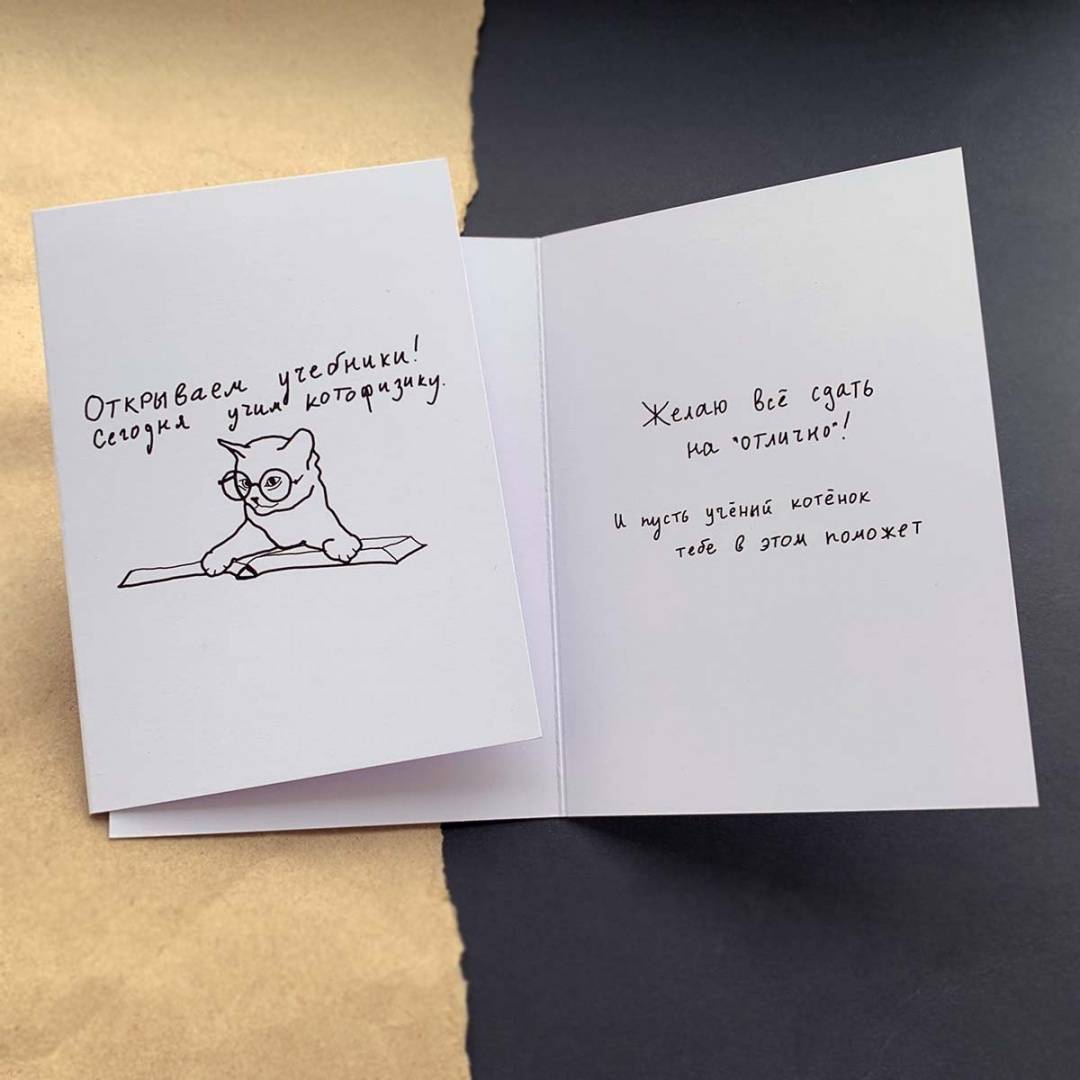 Открываем учебники!
Сегодня учим котофизику.
Желаю всё сдать
на "отлично"!
И пусть учёный котёнок
тебе в этом поможет